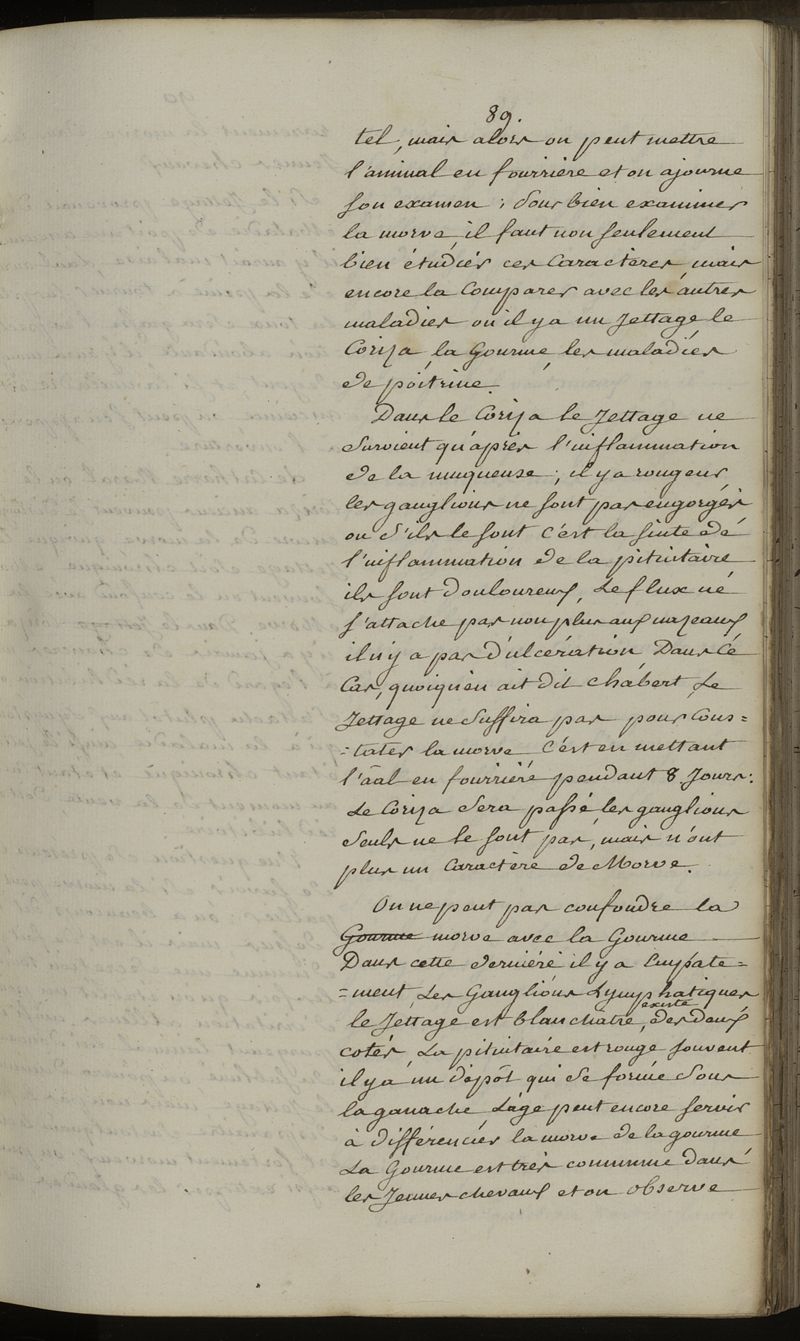 89.
tel, mais alors on peut mettre
l'animal en fourrière et on ajourne
son examen ; Pour bien examiner
la morve, il faut non seulement
bien étudiér ces Caractères, mais
encore la Comparer avec les autres
maladies ou il y a un Jettage le
Coriza, la Gourme, les maladies
de poitrine.
Dans le Coriza le Jettage ne
survient qu'après l'inflammation
de la muqueuse ; il y a rougeur
les ganglions ne sont pas engorgés
ou s'ils le sont c'est la suite de
l'inflammation de la pituitaire
ils sont douloureux, Le flux ne
s'attache pas non plus aux nazeaux
il n'y a pas d'ulcération, Dans Cé
Cas, quoiqu'en ait dit Chabert, Le
Jettage ne Suffira pas pour Cons=
=tater la morve C'est en mettant
l'aāl en fourrière pendant 8 Jours.
Le Coriza sera passé les ganglions
seuls ne le sont pas, mais n'ont
plus un Caractère de Morve.
On ne peut pas confondre la
Gourme morve avec la Gourme
Dans cette dernière il y a Empate=
=ment, Les Ganglions Lymphatiques
le Jettage est blanchâtre, existe des deux
cotés, La pituitaire est rouge souvent
il y a un dépôt qui se forme sous
la ganache, L'âge peut encore servir
à différenciér la morve de la gourme
La Gourme est très commune dans
les Jeunes chevaux et on observe